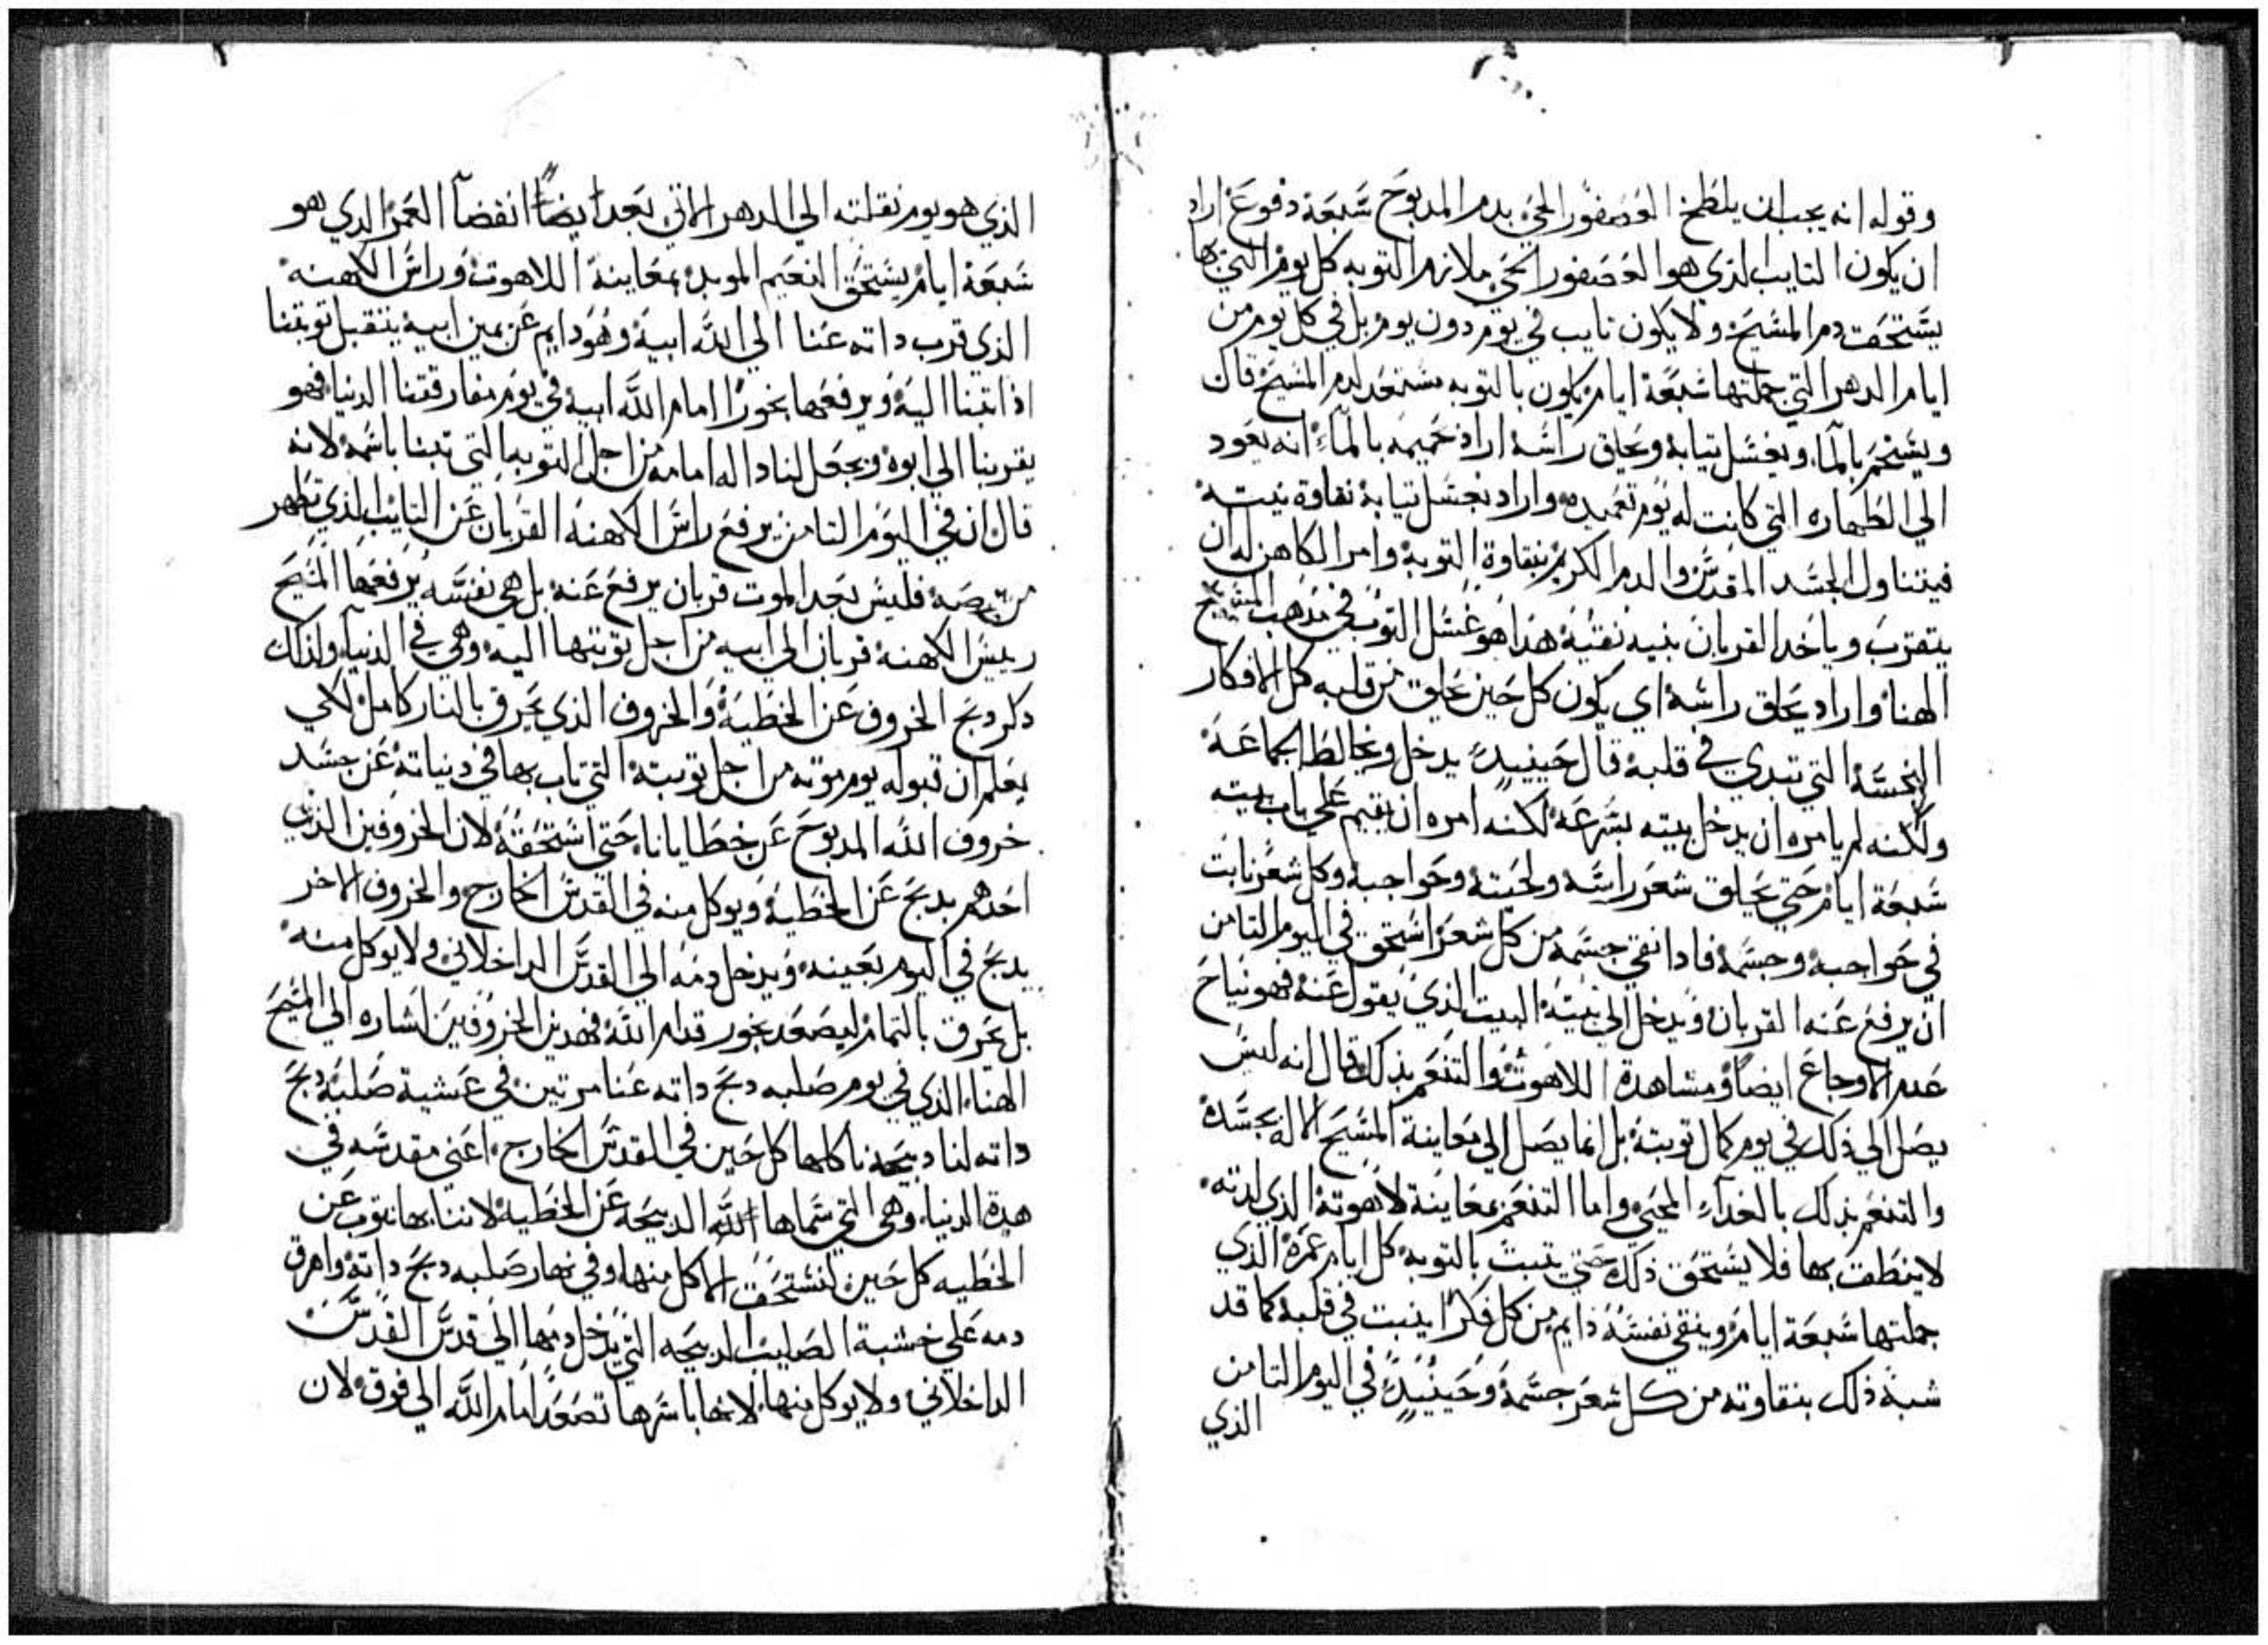 وقوله انه يجب ان يلطخ العصفور الحي بدم المدبوح سبعة دفوع اراد
ان يكون التايب الذي هو العصفور الحي ملازم التوبه كل يوم التي بها
يستحق دم المسيح ولا يكون تايب في يوم دون يوم بل في كل يوم من
ايام الدهر التي جملتها سبعة ايام يكون بالتوبه مستعد لدم المسيح قال
ويستحم بالمآ ويغسل تيابه ويحلق راسه اراد حميمه بالمآء انه يعود
الي الطهاره التي كانت له يوم تعميده واراد بغسل تيابه نقاوة نيته
فيتناول الجسد المقدس والدم الكريم بنقاوة التوبه وامر الكاهن له ان
يتقرب وياخد القربان بنيه نقيه هدا هو غسل التوب في مدهب المسيح
الهنا واراد يحلق راسه اي يكون كل حين يحلق من قلبه كل الافكار
النجسه التي تبدي في قلبه قال حينيدٍ يدخل ويخالط الجماعه
ولكنه لم يامره ان يدخل بيته بسرعه لكنه امره ان يقيم علي باب بيته
سبعة ايام حتي يحلق شعر راسه ولحيته وحواجبه وكل شعر نابت
في حواجبه وجسمه فادا نقي جسمه من كل شعر استحق في اليوم التامن
ان يرفع عنه القربان ويدخل الي بيته البيت الذي يقول عنه فهو نياح
عدم الاوجاع ايضاً ومشاهدة اللاهوت والتنعم بذلك قال انه ليس
يصل الي ذلك في يوم كمال توبته بل انما يصل الي معاينة المسيح الاله بجسده
والتنعم بذلك بالغدآء المحيي واما التنعم بمعاينة لاهوته الذي لدته
لا ينطق بها فلا يستحق ذلك حتي يتبت بالتوبه كل ايام عمره الذي
جملتها سبعة ايام وينقي نفسه دايم من كل فكر ينبت في قلبه كما قد
شبه ذلك بنقاوته من كل شعر جسمه وحينيدٍ في اليوم التامن
الذي
الذي هو يوم نقلته الي الدهر الاتي بعد ايضاً انقضآ العمر الذي هو
سبعة ايام يستحق النعيم الموبد بمعاينة اللاهوت وراس الكهنه
الذي قرب داته عنا الي الله ابيه وهو دايم عن يمين ابيه يتقبل توبتنا
اذا تبنا اليه ويرفعها بخوراً امام الله ابيه في يوم مفارقتنا الدنيا فهو
يقربنا الي ابوه ويجعل لنا داله امامه من اجل التوبه التي تبنا باسمه لانه
قال ان في اليوم التامن يرفع راس الكهنه القربان عن التايب الذي تطهر
من برصه فليس بعد الموت قربان يرفع عنه بل هي نفسه يرفعها المسيح
رييس الكهنه قربان الي ابيه من اجل توبتها اليه وهي في الدنيا ولذلك
دكر دبح الخروف عن الخطيه والخروف الذي يحرق بالنار كامل لكي
يعلم ان قبوله يوم موته من اجل توبته التي تاب بها في دنياته عن جسد
خروف الله المدبوح عن خطايانا حتي استحقه لان الخروفين الذي
احدهم يدبح عن الخطيه ويوكل منه في القدس الخارج والخروف الاخر
يدبح في اليوم بعينه ويدخل دمه الي القدس الداخلاني ولا يوكل منه
بل يحرق بالتمام ليصعد بخور قدام الله فهدين الخروفين اشاره الي المسيح
الهنا الذي في يوم صلبه دبح داته عنا مرتين في عشية صلبه دبح
داته لنا دبيحه ناكلها كل حين في القدس الخارج اعني مقدسه في
هده الدنيا وهي التي سماها الله الدبيحه عن الخطيه لاننا بها نتوب عن
الخطيه كل حين لنستحق الاكل منها وفي نهار صلبه دبح داته واهرق
دمه علي خشبة الصليب الدبيحه التي يدخل دمها الي قدس القدس
الداخلاني ولا يوكل منها لانها باسرها تصعد امام الله الي فوق لان